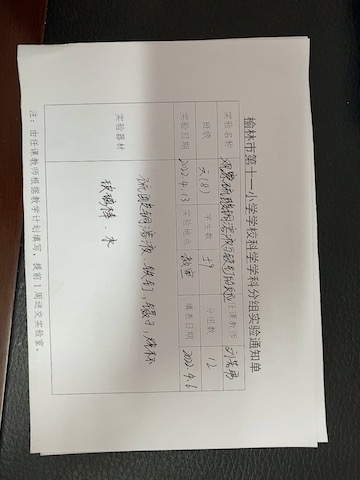 榆林市第十一小学学校科学学科分组实验通知单
实验名称 观察硫酸铜溶液与铁钉的反应 任课教师
班级 六(8) 学生数 59 分组数 12
实验日期 2022.4.13 实验地点 教室 填表日期 2022.4.6
实验器材 硫酸铜溶液、铁钉、镊子、烧杯
玻璃棒、水
注：由任课教师根据教学计划填写，提前1周送交实验室。